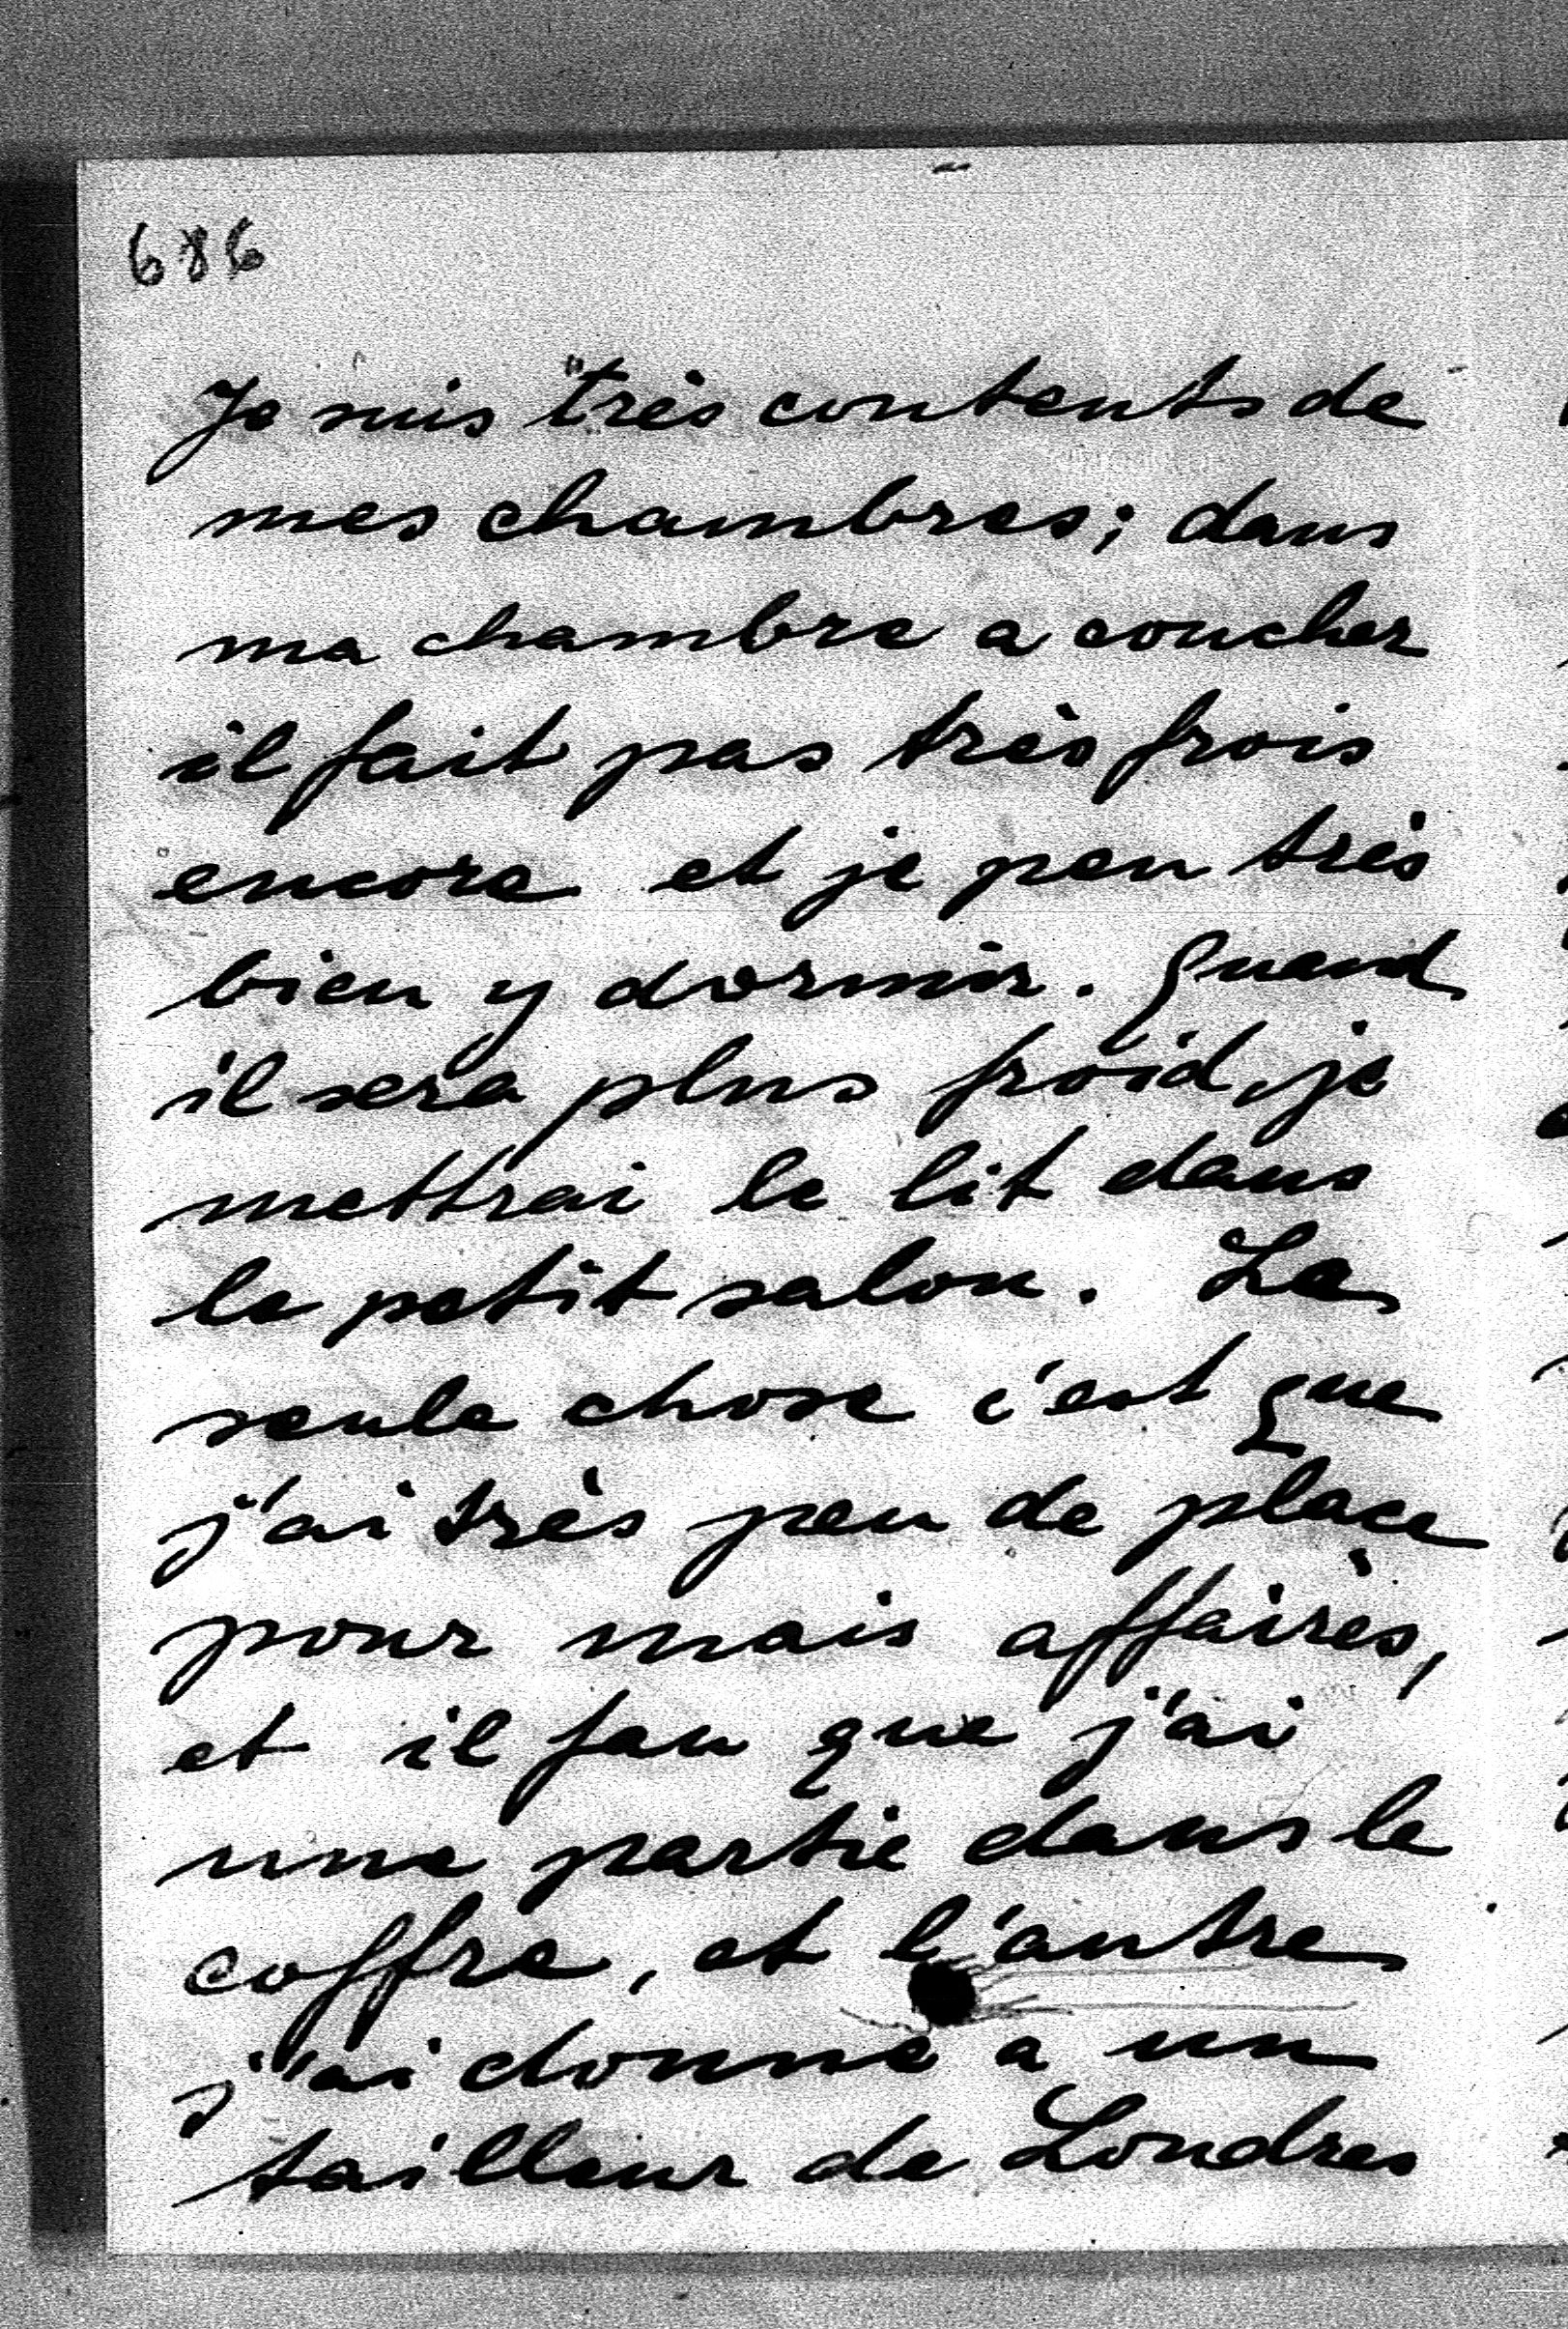 686
Je suis très contents de
mes chambres; dans
ma chambre a coucher
il fait pas très frois
encore et je peu très
bien y dormir. Quand
il sera plus froid, je
mettrai le lit dans
le petit salon. La
seule chose c'est que
j'ai très peu de place
pour mais affairès,
et il fau que j'ai
une partie dans le
coffre, et l'autre
j'ai donne a un
tailleur de Londres